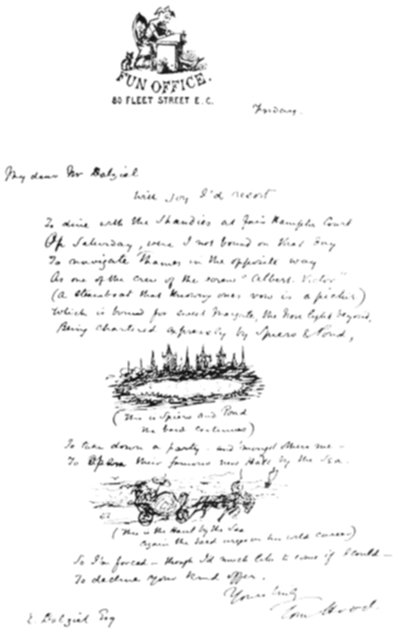 FUN OFFICE.
80 FLEET STREET E.C.
Friday.
My dear Mr Dalziel
With joy I'd resort
To dine with the Shandies at fair Hampton Court
On Saturday, were I not bound on that day
To navigate Thames in the opposite way
As one of the crew of the screw "Albert Victor"
(A steamboat that knowing ones vow is a picter)
Which is bound for sweet Margate, the Nore light beyond,
Being chartered expressly by Spiers & Pond,
(This is Spiers and Pond
the bard continues)
To take down a party - and 'mongst them me -
To open their famous new Hall by the Sea.
(This is the Hall by the Sea
Again the bard urges on his wild career)
So I'm forced - though I'd much like to come if I could -
To decline your kind offer.
Yours truly
Tom Hood.
E. Dalziel Esq